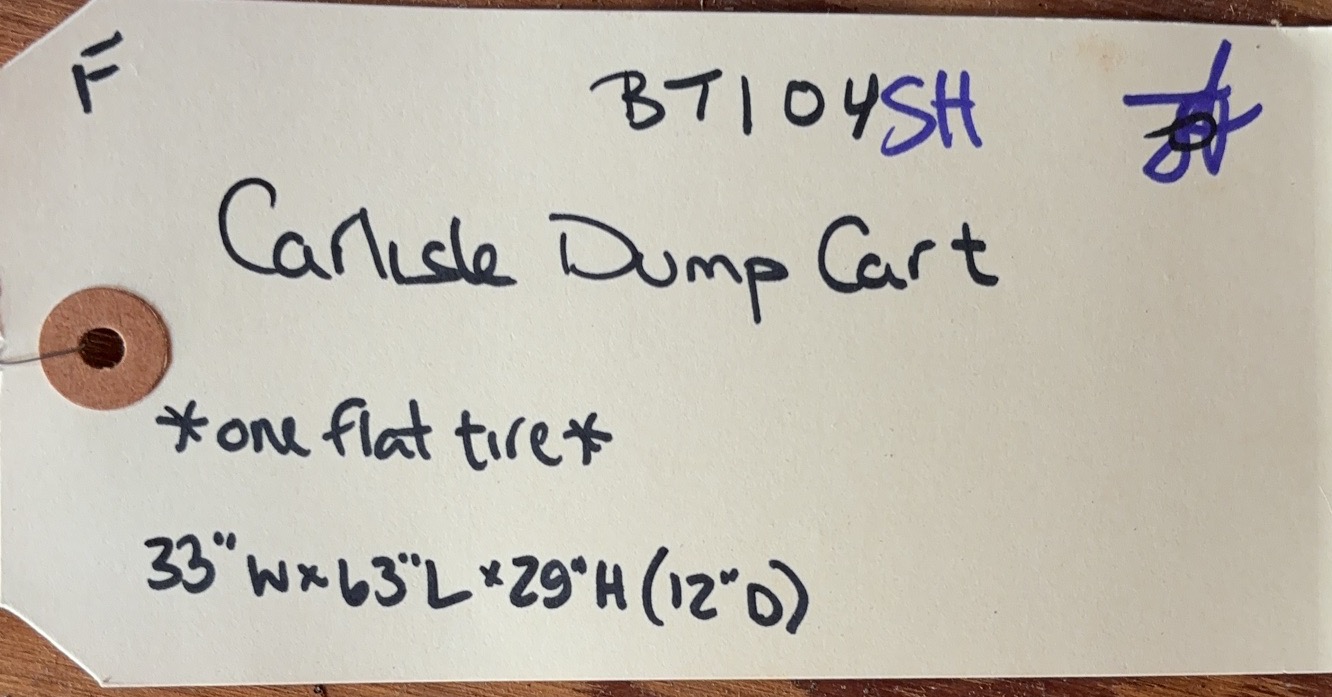 F
BT104SH
Carlisle Dump Cart
*one flat tire*
33"W×63"L×29"H(12"D)